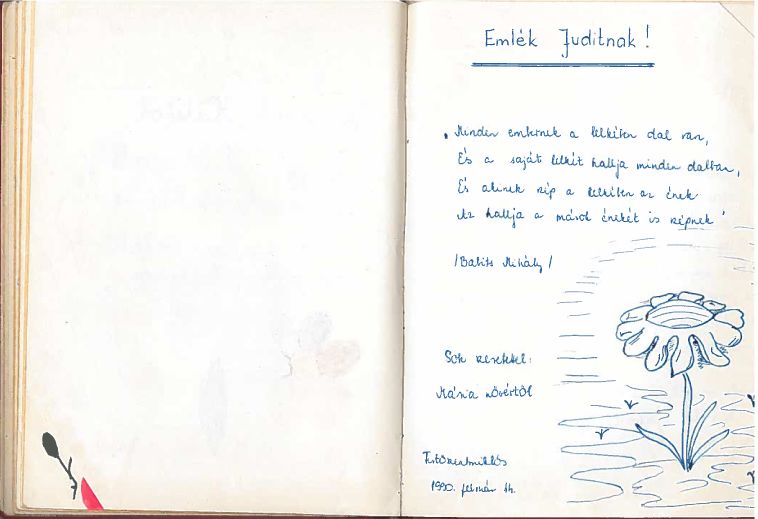 Emlék Juditnak!
„Minden embernek a lelkében dal van,
És a saját lelkét hallja minden dalban,
És akinek szép a lelkében az ének
Az hallja a mások énekét is szépnek"
/Babits Mihály/
Sok szeretettel:
Mária nővértől
1990. február 14.